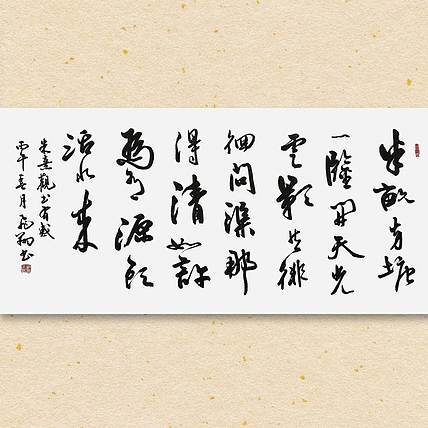 半畝方塘
一鑑開天光
雲影共徘
徊問渠那
得清如許
為有源頭
活水來
朱熹觀書有感
丙午春月翔書